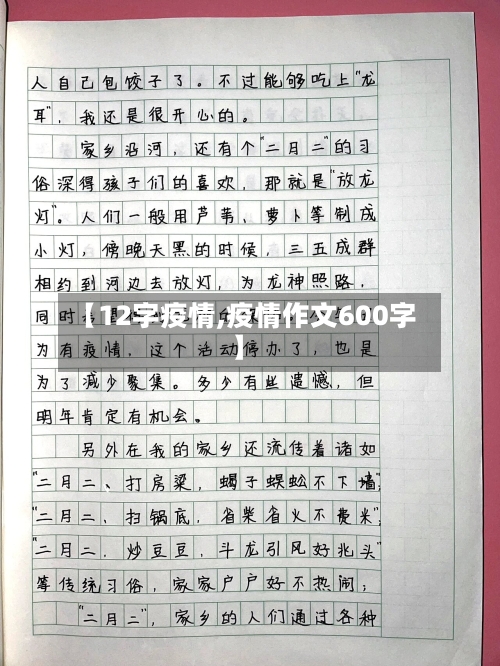 人自己包饺子了。不过能够吃上“龙
耳”，我还是很开心的。
家乡沿河，还有个“二月二”的习
俗深得孩子们的喜欢，那就是“放龙
灯”。人们一般用芦苇、萝卜等制成
小灯，傍晚天黑的时候，三五成群
相约到河边去放灯，为龙神照路，
同时
【12字疫情,疫情作文600字
】
为有疫情，这个活动停办了，也是
为了减少聚集。多少有些遗憾，但
明年肯定有机会。
另外在我的家乡还流传着诸如
“二月二、打房梁，蝎子蜈蚣不下墙”；
“二月二、扫锅底，省柴省火不费米”；
“二月二、炒豆豆，斗龙引风好兆头”
等传统习俗，家家户户好不热闹；
“二月二”，家乡的人们通过各种